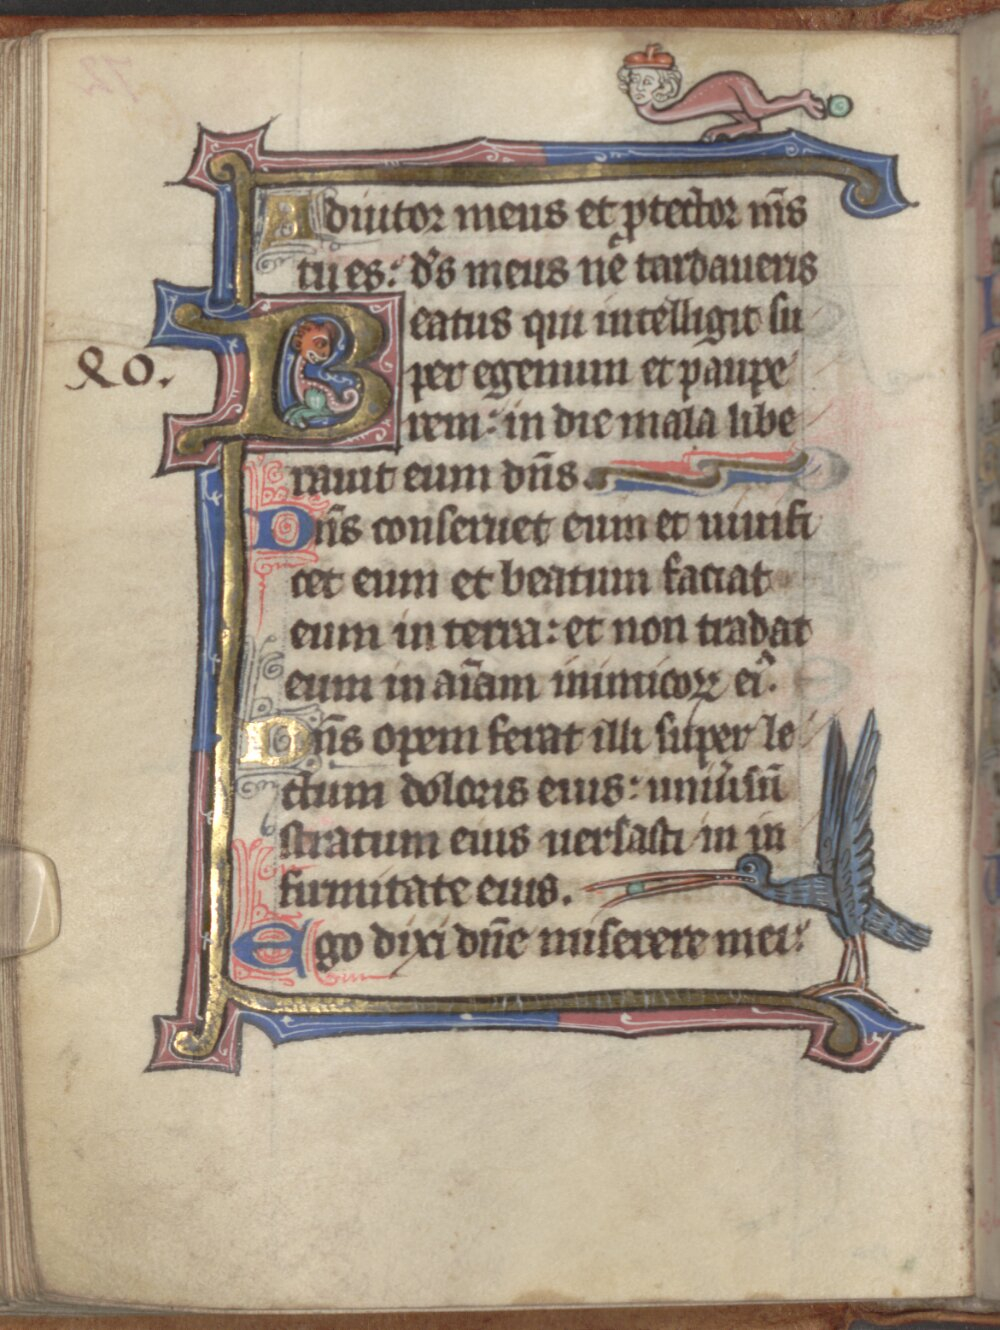 72
Adiutor meus et ꝓtector m̄s
tu es: d̕s meus nē tardaueris
Beatus qui intelligit su
40.
per egenum et paupe
rem: in die mala libe
rauit eum dn̄s
Dn̄s conseruet eum et uiuifi
cet eum et beatum faciat
eum in terra: et non tradat
eum in aīam inimicoꝝ ei᷒.
Dn̄s opem ferat illi super le
ctum doloris eius: uniu̕sū
stratum eius uersasti in in
firmitate eius.
Ego dixi dn̄e miserere mei: